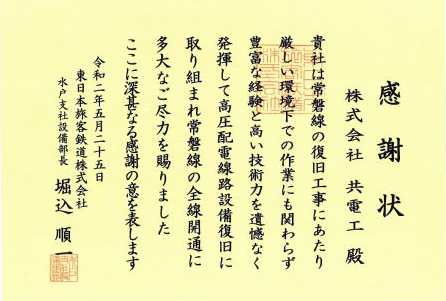 感謝状
株式会社 共電工 殿
貴社は常磐線の復旧工事にあたり
厳しい環境下での作業にも関わらず
豊富な経験と高い技術力を遺憾なく
発揮して高圧配電線路設備復旧に
取り組まれ常磐線の全線開通に
多大なご尽力を賜りました
ここに深甚なる感謝の意を表します
令和二年五月二十五日
東日本旅客鉄道株式会社
水戸支社設備部長 堀込 順一